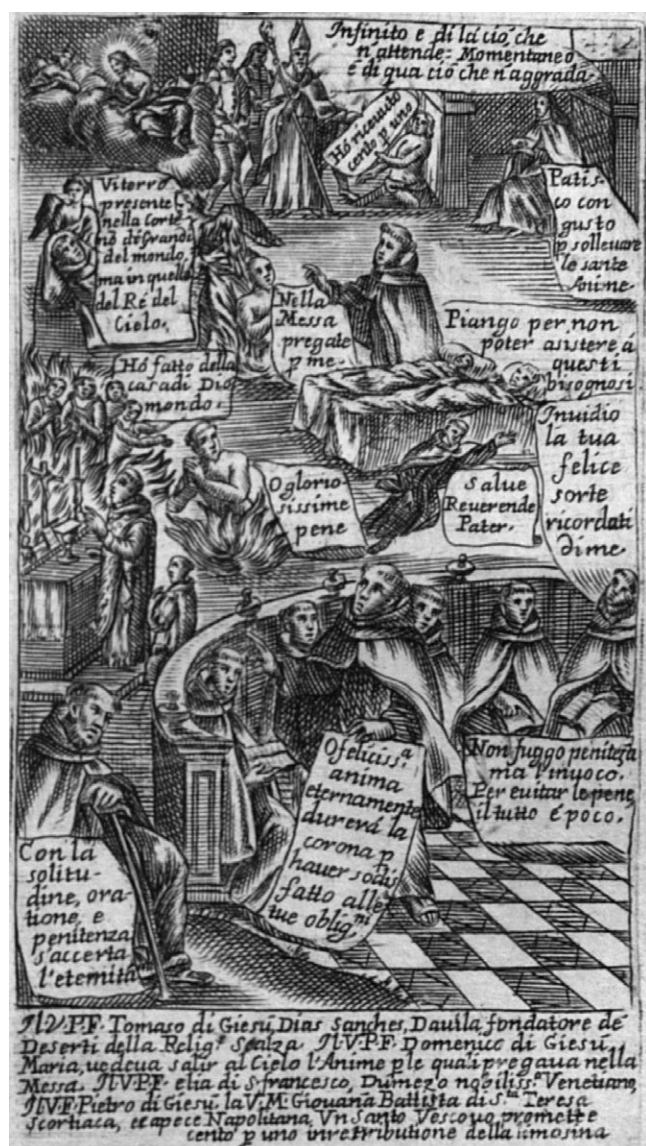 Infinito e di la ciò, che
n'attende: Momentaneo
è di qua ciò che n'aggrada.
Hò riceuuto
cento p uno
Patis-
co con
gusto
p solleuare
le sante
Anime.
Vi torrò
presente
nella Corte
nò di grandi
del mondo,
ma in quella
del Rè del
Cielo.
Nella
Messa
pregate
p me.
Piango per non
poter asistere á
questi
bisognosi
Hò fatto della
casa di Dio
mondo.
O glorio-
sissime
pene
Salue
Reuerende
Pater.
Inuidio
la tua
felice
sorte
ricordati
di me.
O feliciss.ª
anima
eternamente
durerá la
corona p
hauer sodis
fatto alle
tue oblig.ni
Non fuggo peniteza
ma l'inuoco.
Per euitar le pene
il tutto é poco.
Con la
solitu-
dine, ora-
tione, e
penitenza
s'accerta
l'eternità
Il V. P. F. Tomaso di Giesù, Dias Sanches, Dauila fondatore de
Deserti della Relig.e Scalza. Il V. P. F. Domenico di Giesù
Maria, uedeua salir al Cielo l'Anime p le quali pregaua nella
Messa. Il V. P. F. elia di S. francesco, Dumezo nobiliss.º Venetiano,
Il V. F. Pietro di Giesù. la V. M. Giouana Battista di S.ta Teresa
Scortiaca, et apece Napolitana, Vn Santo Vescouo promette
cento p uno in retributione della limosina